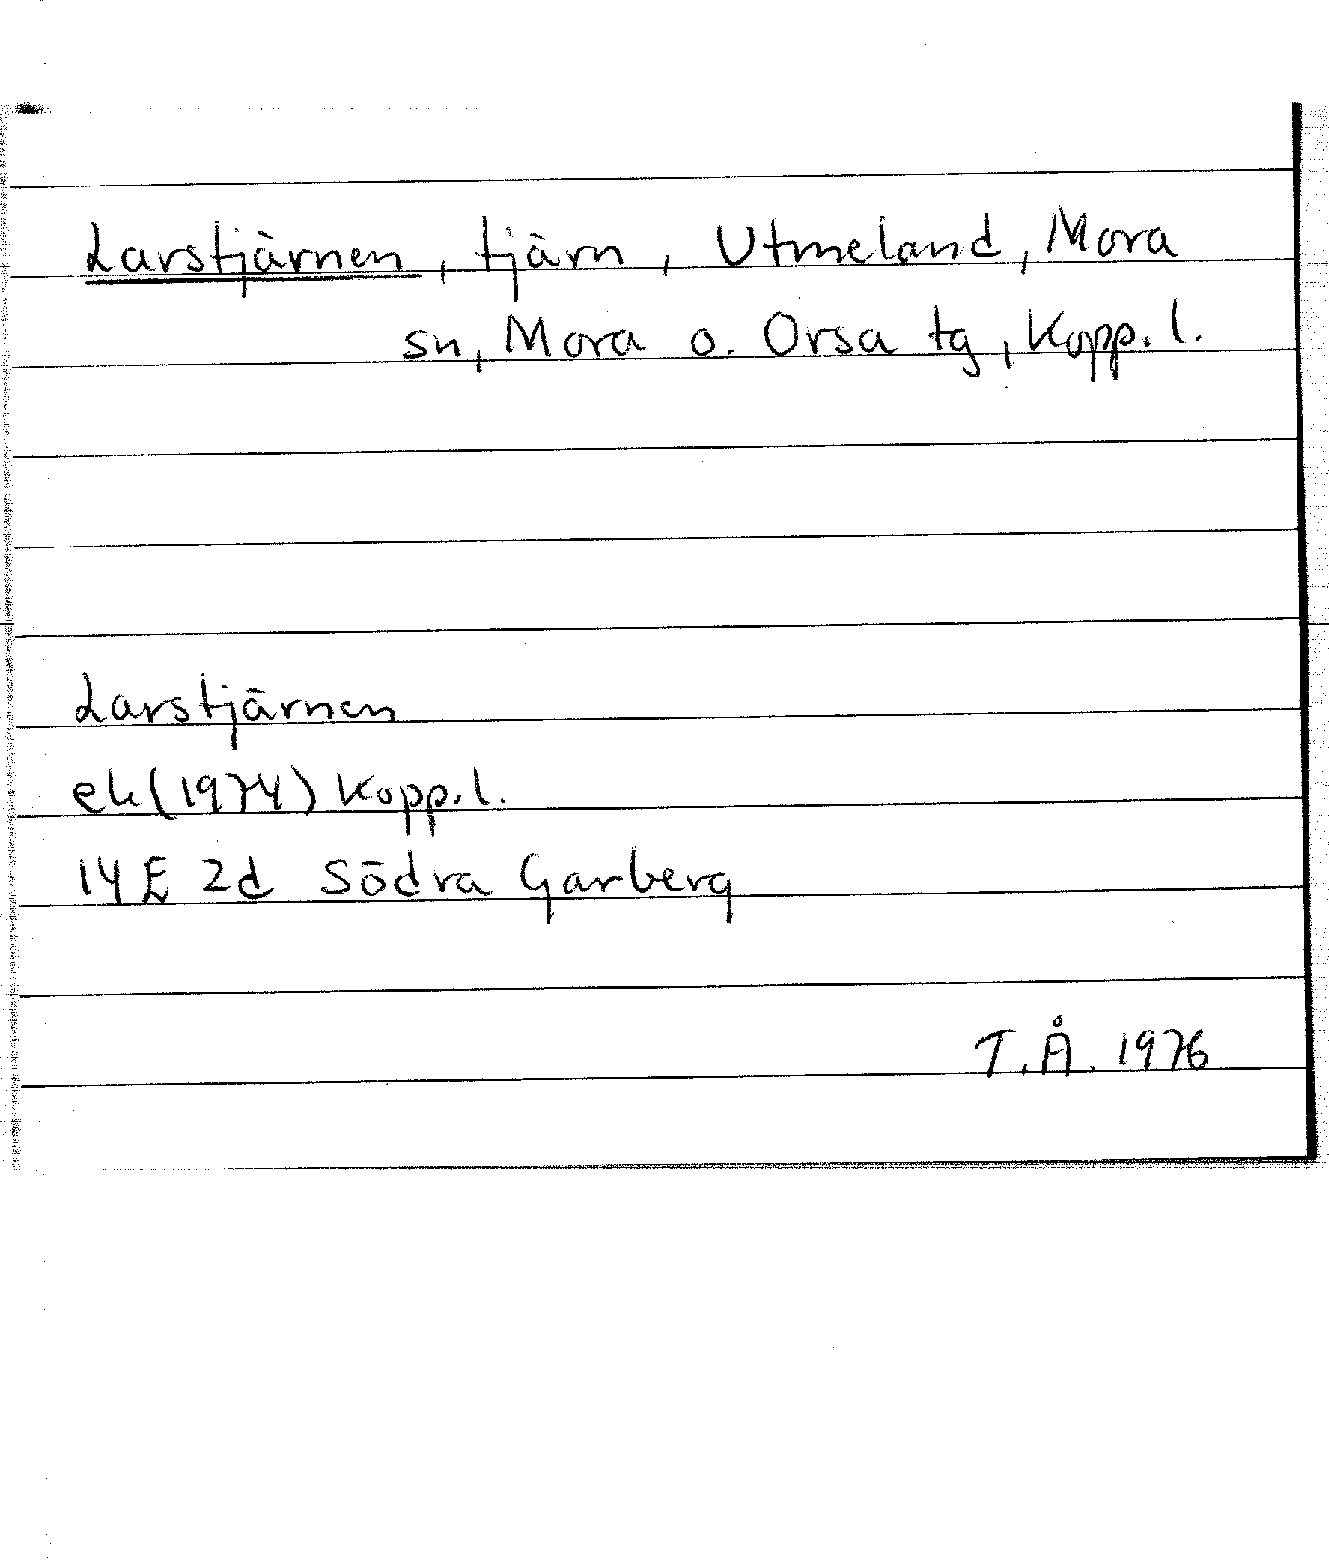 Larstjärnen, tjärn, Utmeland, Mora
sn, Mora o. Orsa tg, Kopp. l.
Larstjärnen
ek (1974) Kopp. l.
14E 2d Södra Garberg
T.Å. 1976